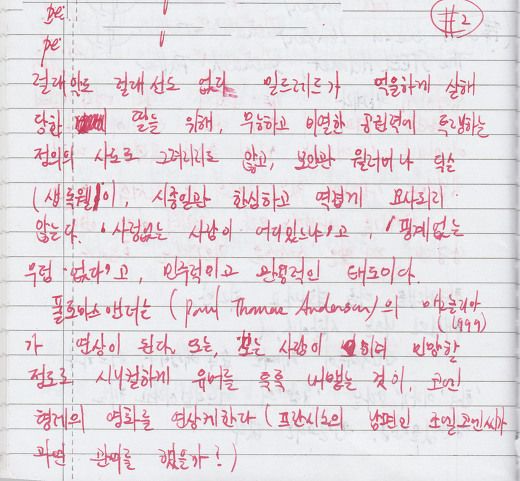 pe:
#2
pe:
절대악도 절대선도 없다. 밀드레드가 억울하게 살해
당한 딸을 위해, 무능하고 비열한 공권력에 투쟁하는
정의의 사도로 그려지지도 않고, 보안관 윌러비나 딕슨
(샘 록웰)이, 시종일관 한심하고 역겹게 묘사되지
않는다. '사정없는 사람이 어디있느냐'고, '핑계없는
무덤 없다'고, 민주적이고 관용적인 태도이다.
폴토마스앤더슨 (Paul Thomas Anderson)의 매그놀리아
(1999)
가 연상이 된다. 또는, 보는 사람이 민망한
정도로 시니컬하게 유머를 툭툭 내뱉는 것이, 코엔
형제의 영화를 연상케한다 (프란시스의 남편인 조엘코엔씨가
과연 관여를 했을까?)